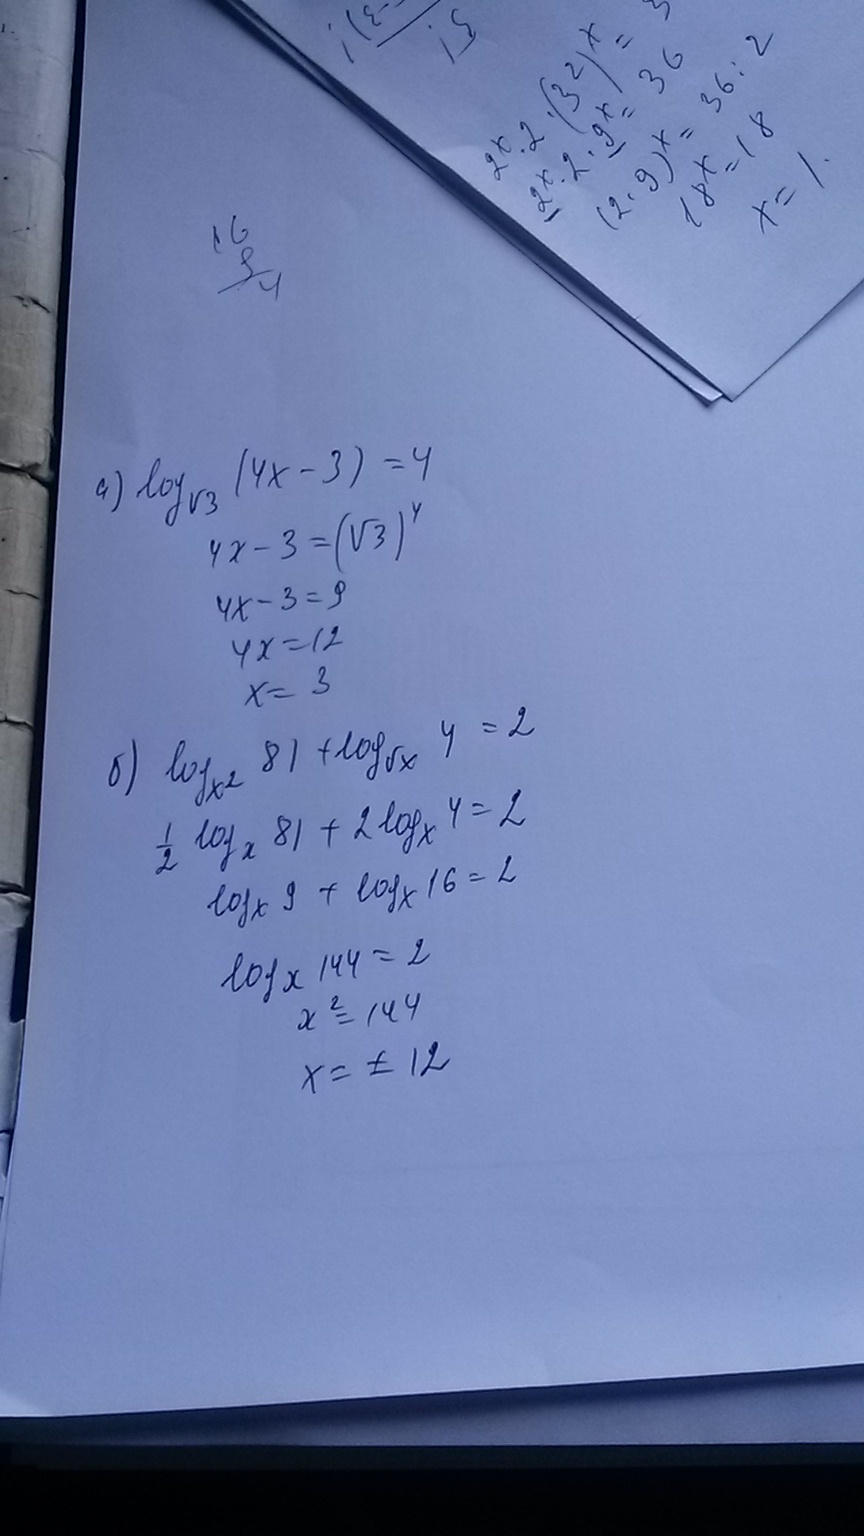 2ˣ·2·(3²)ˣ=3
2ˣ·2·9ˣ=36
(2·9)ˣ=36:2
18ˣ=18
x=1.
16
9
4
а) log√3 (4x-3)=4
4x-3=(√3)⁴
4x-3=9
4x=12
x=3
б) logx² 81+log√x 4=2
½ logx 81+2logx 4=2
logx 9+logx 16=2
logx 144=2
x²=144
x=±12